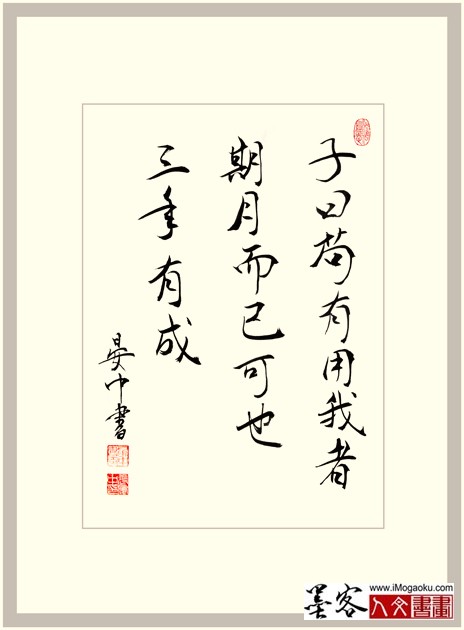 子曰苟有用我者
期月而已可也
三年有成
晏中書
www.iMogaoku.com
墨客
人文書畫